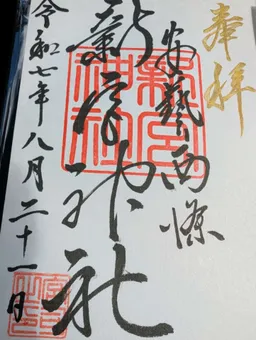 奉拝
安藝西條
新宮神社
令和七年八月二十一日